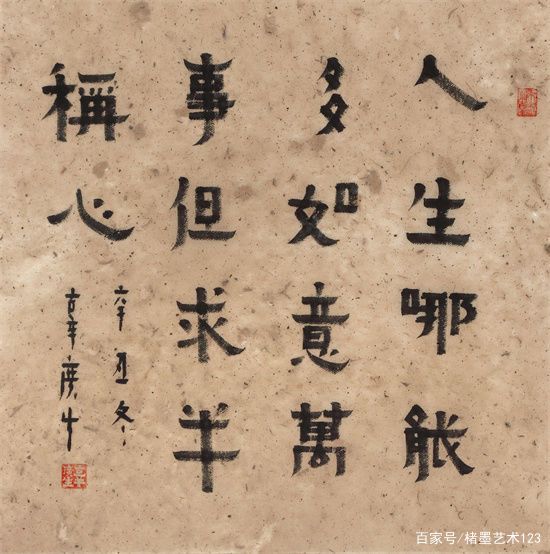 人生哪能
多如意萬
事但求半
稱心
辛丑冬
百家号/楮墨艺术123